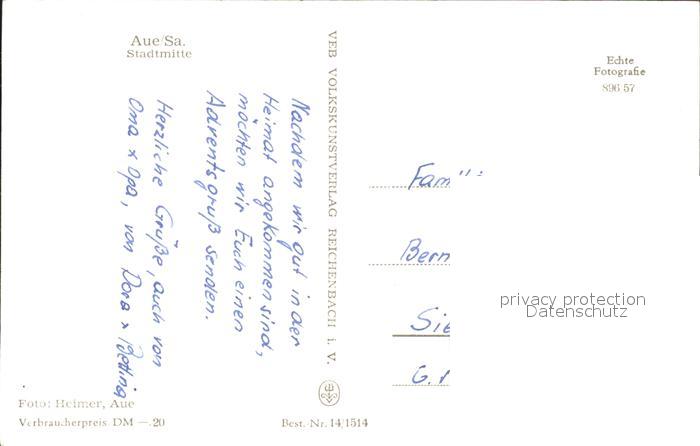 Aue/Sa.
Stadtmitte
VEB VOLKSKUNSTVERLAG REICHENBACH i. V.
Echte
Fotografie
896 57
Nachdem wir gut in der
Heimat angekommen sind,
möchten wir Euch einen
Adventsgruß senden.
Herzliche Grüße, auch von
Oma + Opa, von Dora + Bettina
Fam
Bern
Sie
G.
privacy protection
Datenschutz
Foto: Heimer, Aue
Verbraucherpreis DM —.20
Best.-Nr. 14/1514